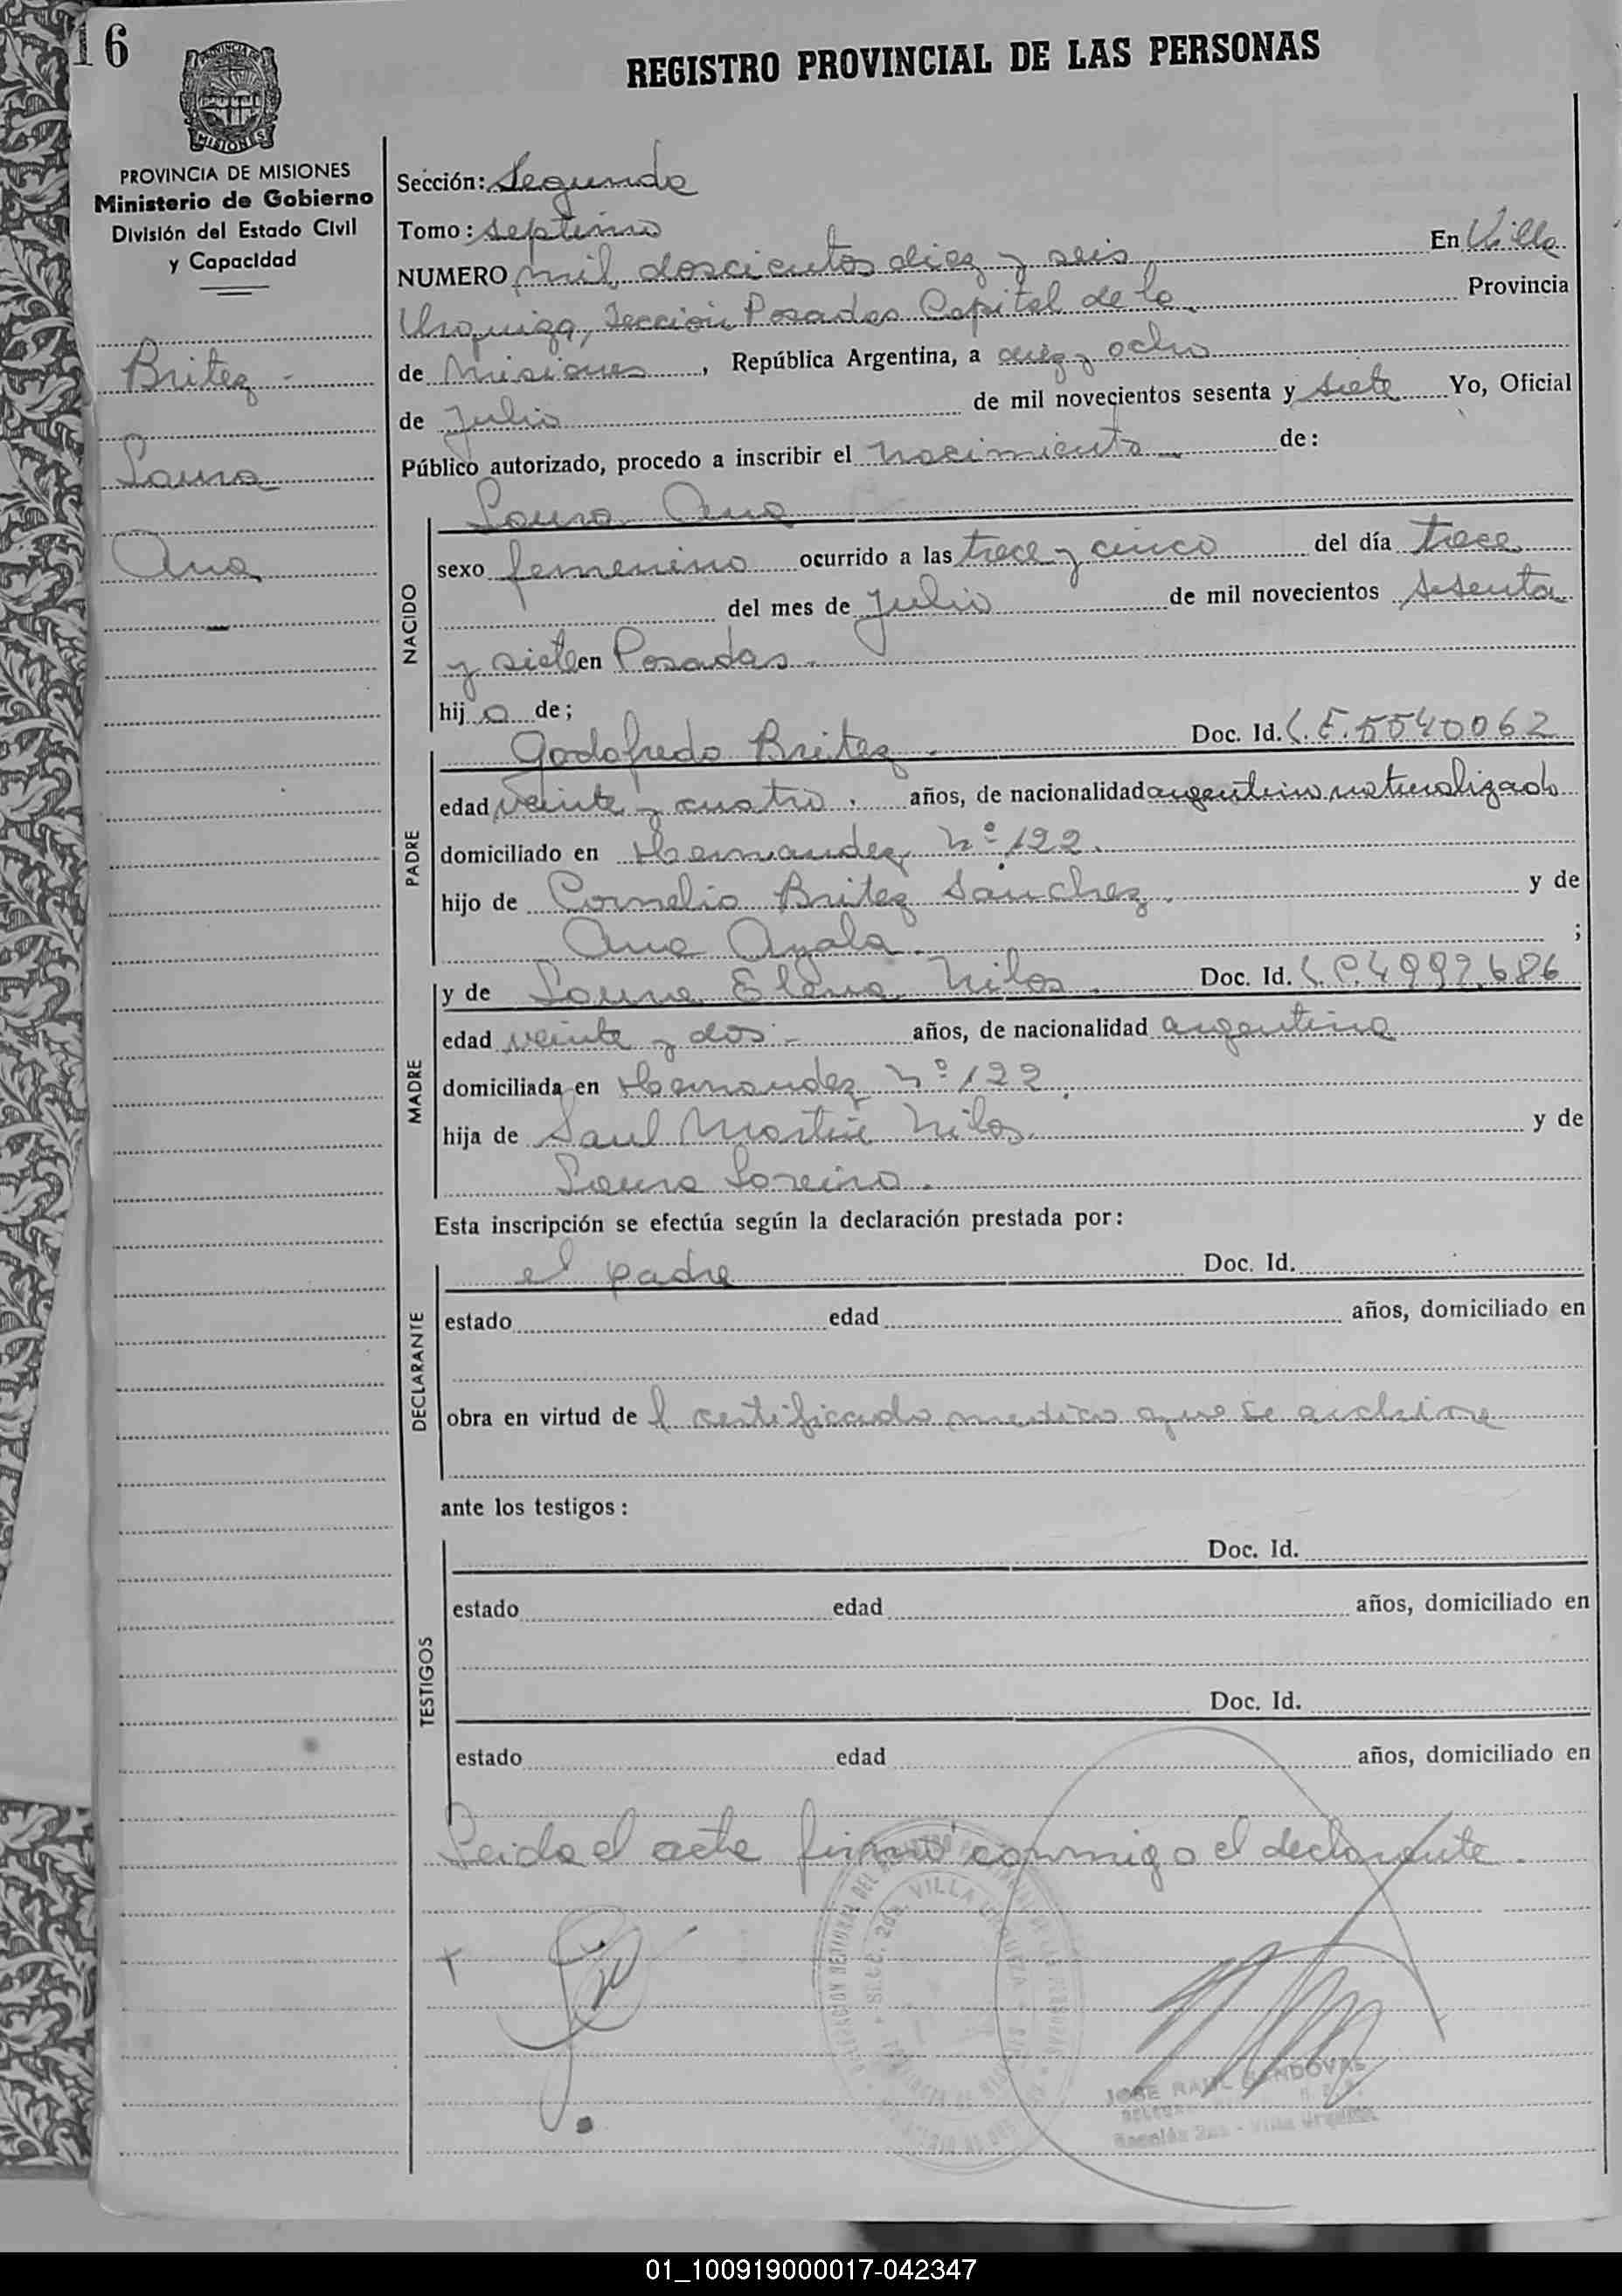 16
REGISTRO PROVINCIAL DE LAS PERSONAS
MISIONES
PROVINCIA DE MISIONES
Ministerio de Gobierno
División del Estado Civil
y Capacidad
Britez -
Laura
Ana
Sección: Segunda
Tomo: septimo
NUMERO mil doscientos diez y seis En Villa
Urquiza, Sección Posadas Capital de la Provincia
de Misiones, República Argentina, a diez y ocho
de Julio de mil novecientos sesenta y siete Yo, Oficial
Público autorizado, procedo a inscribir el nacimiento de:
Laura Ana
NACIDO
sexo femenino ocurrido a las trece y cinco del día trece
del mes de Julio de mil novecientos sesenta
y siete en Posadas.
hij a de;
PADRE
Godofredo Britez. Doc. Id. L.E. 5540062
edad veinte y cuatro. años, de nacionalidad argentino naturalizado
domiciliado en Hernandez Nº 122.
hijo de Cornelio Britez Sánchez. y de
Ana Ayala. ;
MADRE
y de Laura Elena Milos. Doc. Id. L.C. 4.992.686
edad veinte y dos.- años, de nacionalidad argentina
domiciliada en Hernandez Nº 122.
hija de Saul Martin Milos. y de
Laura Loreiro.
Esta inscripción se efectúa según la declaración prestada por:
DECLARANTE
el padre Doc. Id.
estado edad años, domiciliado en
obra en virtud de l certificado medico que se archiva
ante los testigos:
TESTIGOS
Doc. Id.
estado edad años, domiciliado en
Doc. Id.
estado edad años, domiciliado en
Leida el acta firmó conmigo el declarante.
SECC. 2da. VILLA URQUIZA
JOSE RAUL SANDOVAL
Sección 2da - Villa Urquiza
01_100919000017-042347